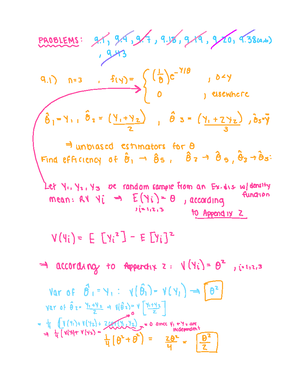 PROBLEMS: 9.1, 9.4, 9.7, 9.18, 9.19, 9.20, 9.38(a,b)
, 9.43
9.1) n=3 , f(y) = { (1/θ) e^-y/θ , 0<y
0 , elsewhere
θ̂₁ = Y₁, θ̂₂ = (Y₁+Y₂)/2 , θ̂3 = (Y₁+2Y₂)/3 , θ̂5=Ȳ
→ unbiased estimators for θ
Find efficiency of θ̂₁ → θ̂5 , θ̂₂ → θ̂5, θ̂3 → θ̂5:
Let Y₁, Y₂, Y3 be random sample from an Ex. dis w/ density function
mean: RV Yi ⇒ E(Yi) = θ , according
, i=1,2,3 to Appendix 2
V(Yi) = E[Yi²] - E[Yi]²
→ according to Appendix 2: V(Yi) = θ² , i=1,2,3
Var of θ̂₁ = Y₁ : V(θ̂₁) = V(Y₁) → θ²
Var of θ̂₂ = (Y₁+Y₂)/2 → V(θ̂₂) = V[(Y₁+Y₂)/2]
= 1/4 (V(Y₁) + V(Y₂) + 2
→ 1/4 (V(Y₁) + V(Y₂)) = 0 since Y₁ + Y₂ are independent
1/4 (θ² + θ²) = 2θ²/4 = θ²/2